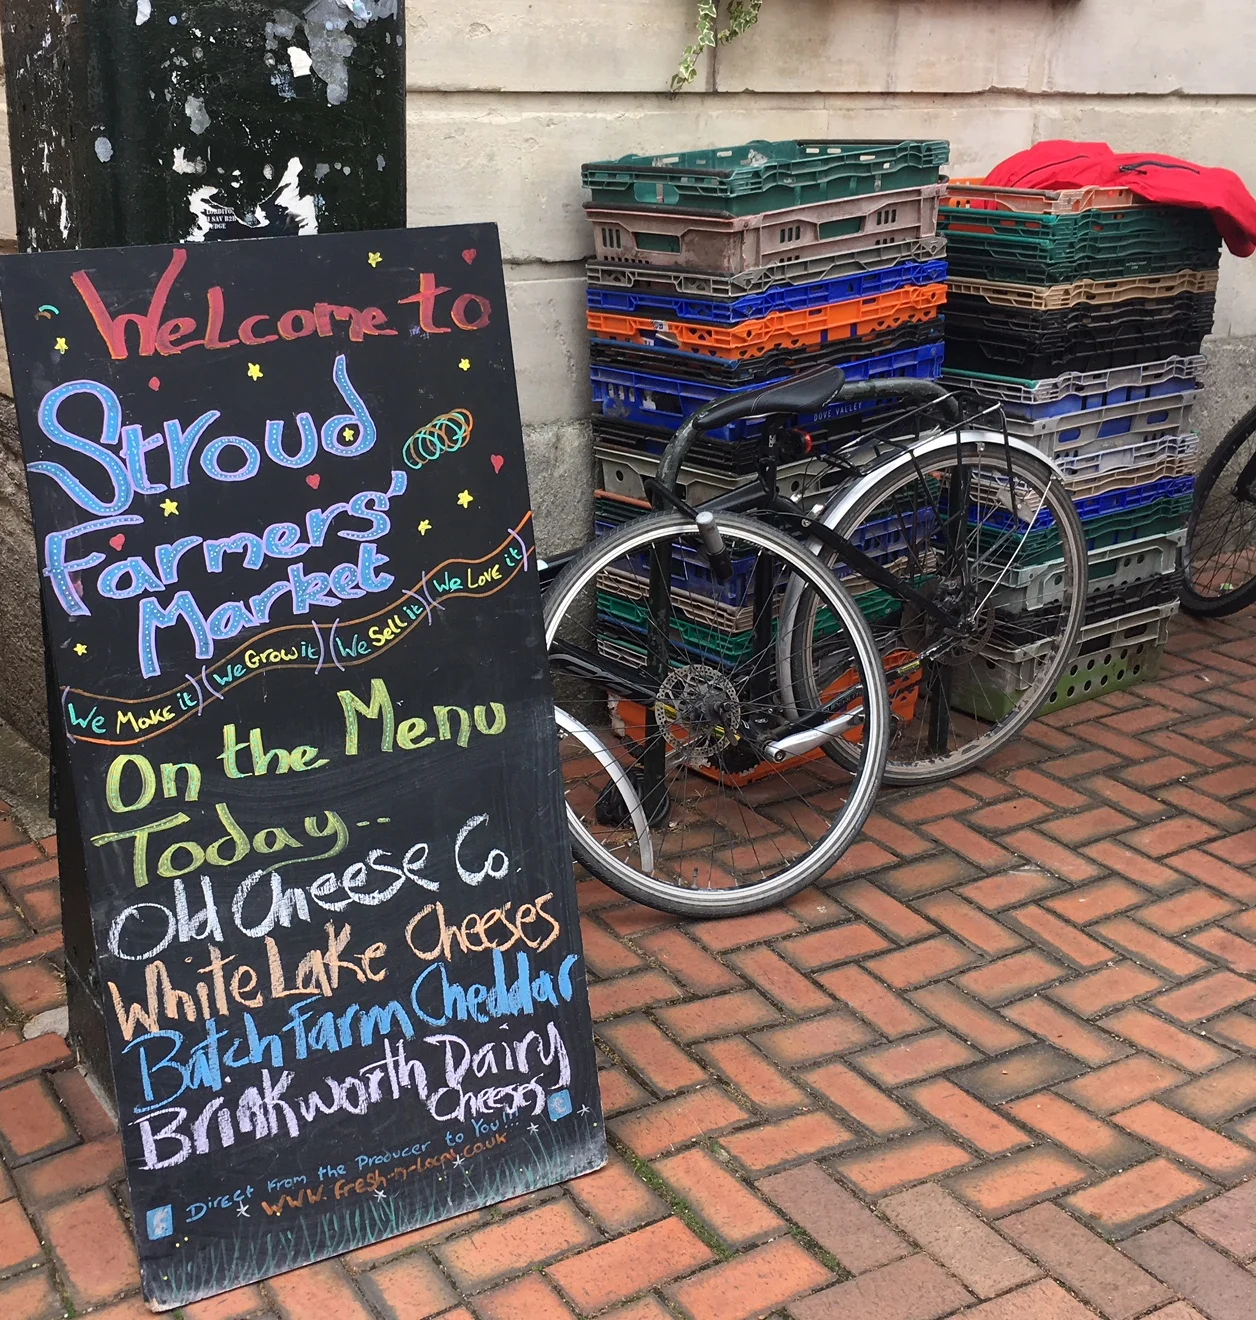 Welcome to
Stroud
Farmers'
Market
We Make it) (We Grow it) (We Sell it) (We Love it)
On the Menu
Today--
Old Cheese Co.
White Lake Cheeses
Batch Farm Cheddar
Brinkworth Dairy
Cheeses
Direct from the Producer to You!!
www.fresh-n-local.co.uk
f
DOVE VALLEY